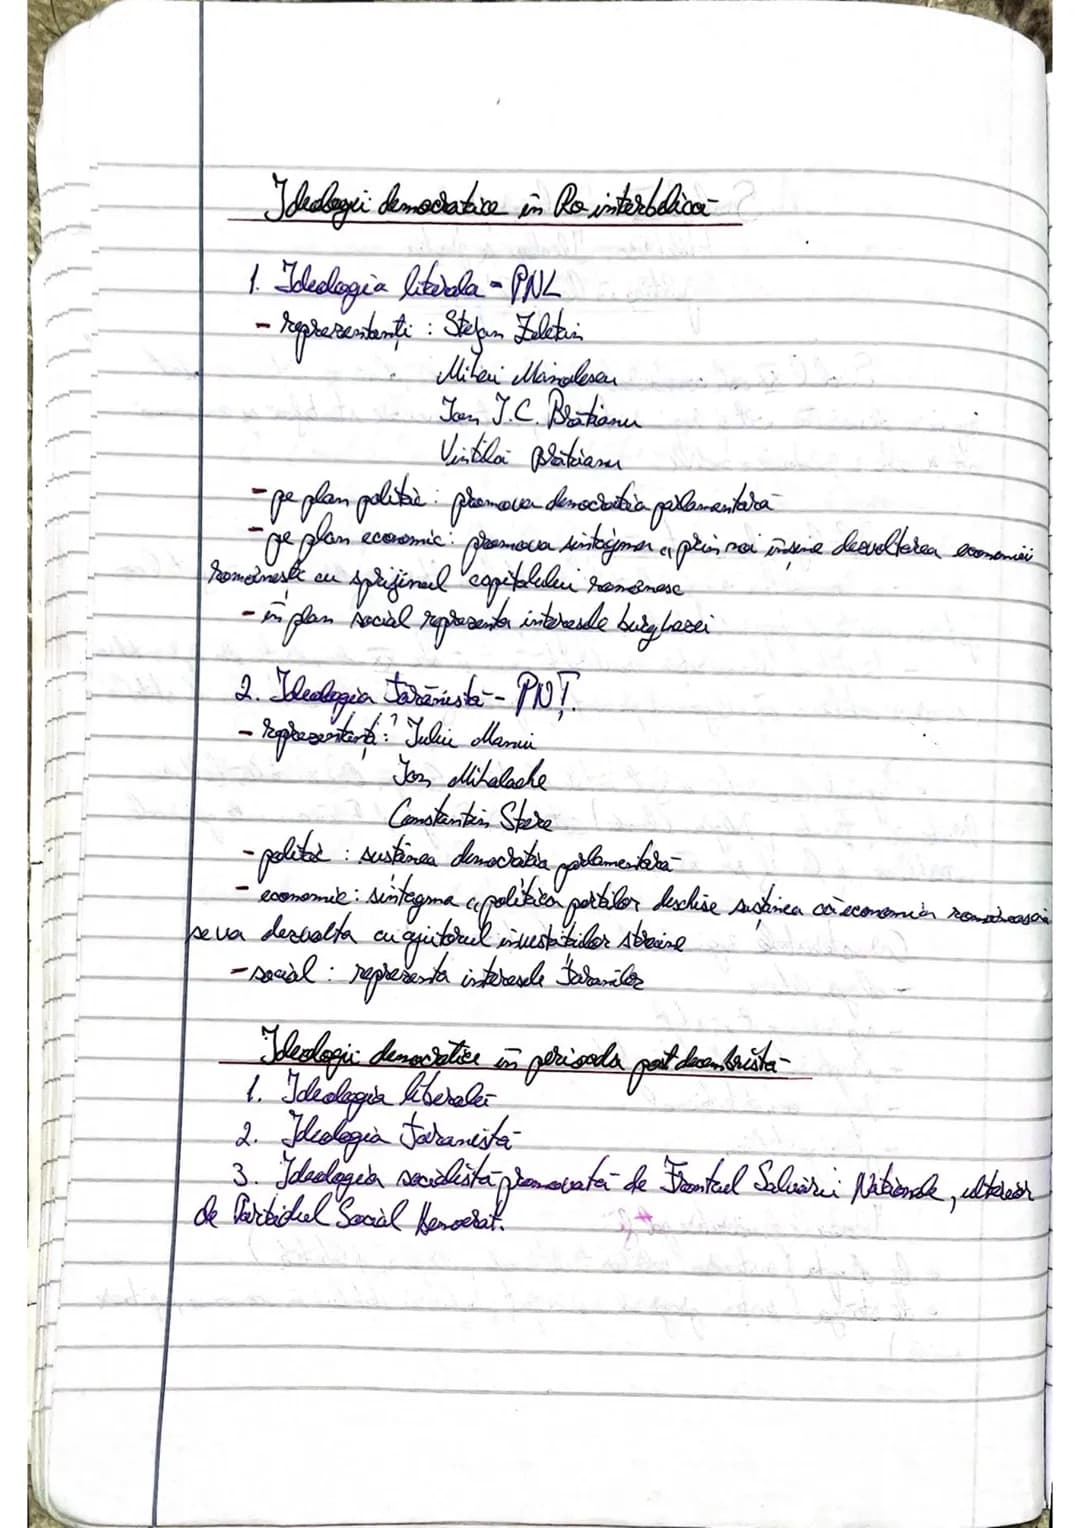 Ideologii democratice în Ro interbelică
1. Ideologia liberala - PNL
- reprezentanți : Stefan Zeletin
Mihai Manolescu
Ion I.C. Brătianu
Vintilă Brătianu
- pe plan politic : promova democratia parlamentară
- pe plan economic : promova sintagma „prin noi însine dezvoltarea economiei
românești cu sprijinul capitalului romanesc
- în plan social reprezenta interesele burgheziei
2. Ideologia țărănistă - PNȚ.
- reprezentanți : Iuliu Maniu
Ion Mihalache
Constantin Stere
- politic : sustinea democratia parlamentară
- economic : sintagma „politica portilor deschise susținea că economia românească
se va dezvolta cu ajutorul investițiilor străine
- social : reprezenta interesele țăranilor
Ideologii democratice în perioada postdecembristă
1. Ideologia liberală
2. Ideologia țaranistă
3. Ideologia socialistă promovată de Frontul Salvării Nationale, ulterior
de Partidul Social Democrat.